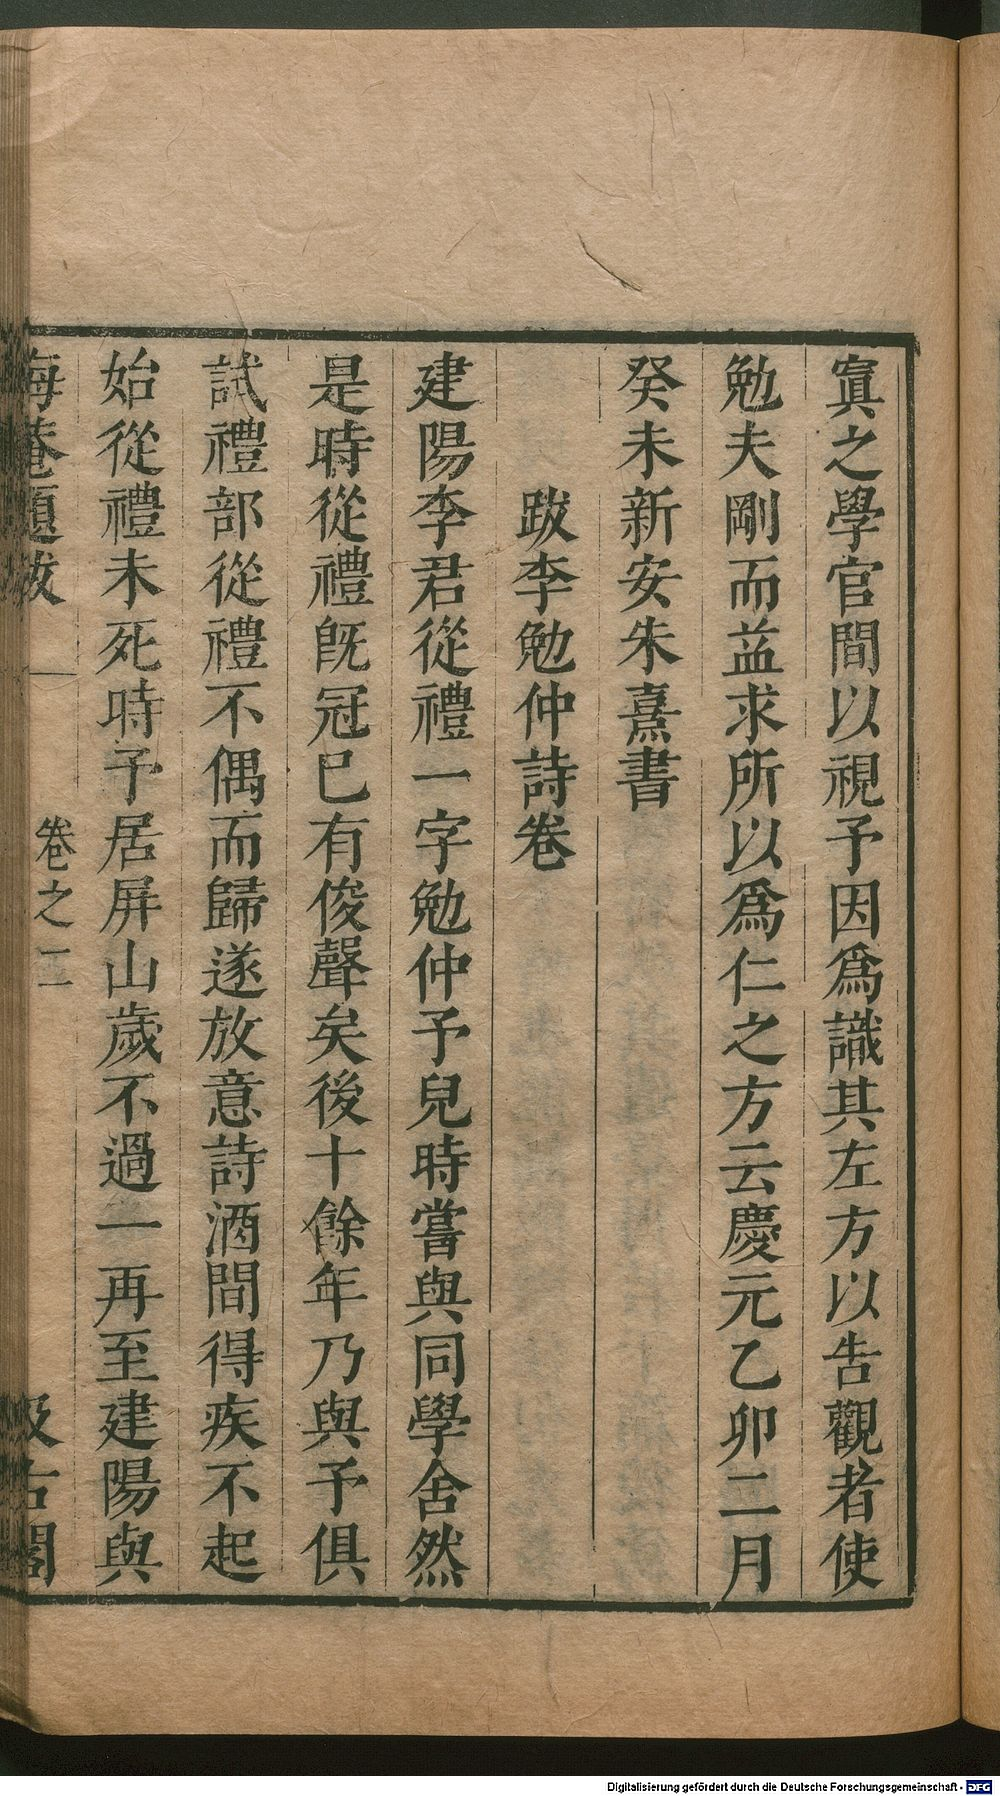 寘之學官間以視予因爲識其左方以告觀者使
勉夫剛而益求所以爲仁之方云慶元乙卯二月
癸未新安朱熹書
跋李勉仲詩卷
建陽李君從禮一字勉仲予兒時嘗與同學舍然
是時從禮既冠巳有俊聲矣後十餘年乃與予俱
試禮部從禮不偶而歸遂放意詩酒間得疾不起
始從禮未死時予居屏山歲不過一再至建陽與
海菴題跋 卷之二 汲古閣
Digitalisierung gefördert durch die Deutsche Forschungsgemeinschaft - DFG